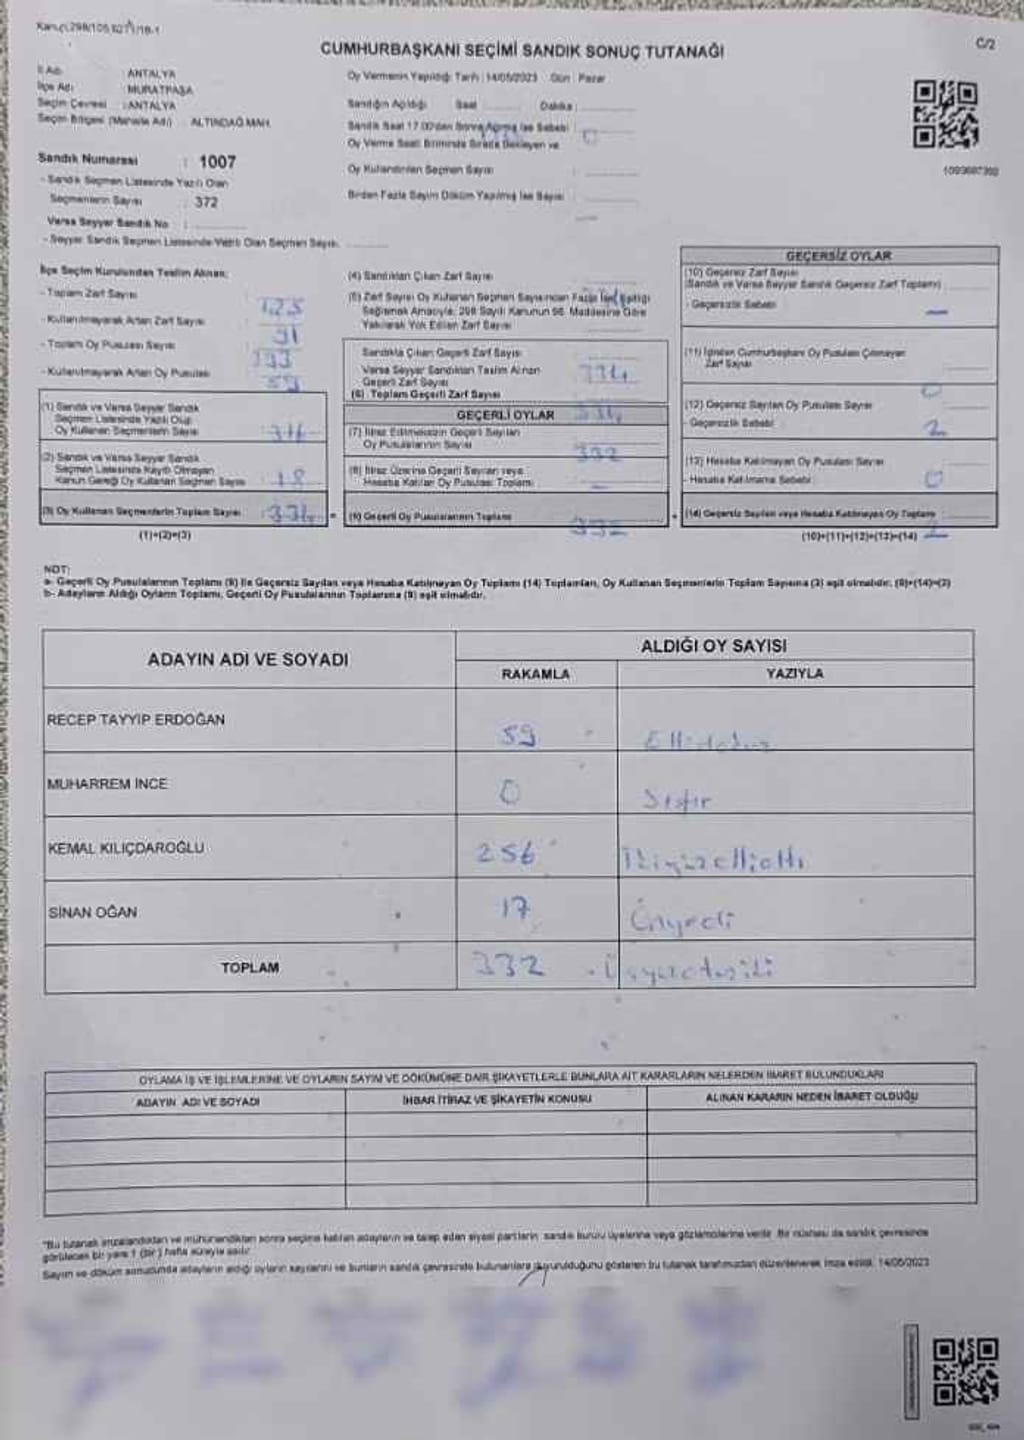 CUMHURBAŞKANI SEÇİMİ SANDIK SONUÇ TUTANAĞI
C/2
İl Adı : ANTALYA
İlçe Adı : MURATPAŞA
Seçim Çevresi : ANTALYA
Seçim Bölgesi (Mahalle Adı) : ALTINDAĞ MAH.
Sandık Numarası : 1007
- Sandık Seçmen Listesinde Yazılı Olan
Seçmenlerin Sayısı : 372
Varsa Seyyar Sandık No :
- Seyyar Sandık Seçmen Listesinde Yazılı Olan Seçmen Sayısı:
Oy Vermenin Yapıldığı Tarih : 14/05/2023 Gün : Pazar
Sandığın Açıldığı Saat Dakika :
Sandık Saat 17.00'den Sonra Açılmış İse Sebebi : 0
Oy Verme Saati Bitiminde Sırada Bekleyen ve
Oy Kullandırılan Seçmen Sayısı :
Birden Fazla Sayım Döküm Yapılmış İse Sayısı :
İlçe Seçim Kurulundan Teslim Alınan;
- Toplam Zarf Sayısı
- Kullanılmayarak Artan Zarf Sayısı
- Toplam Oy Pusulası Sayısı
- Kullanılmayarak Artan Oy Pusulası
(1) Sandık ve Varsa Seyyar Sandık
Seçmen Listesinde Yazılı Olup
Oy Kullanan Seçmenlerin Sayısı : 316
(2) Sandık ve Varsa Seyyar Sandık
Seçmen Listesinde Kayıtlı Olmayan
Kanun Gereği Oy Kullanan Seçmen Sayısı 18
(3) Oy Kullanan Seçmenlerin Toplam Sayısı : 334
(1)+(2)=(3)
(4) Sandıktan Çıkan Zarf Sayısı
(5) Zarf Sayısı Oy Kullanan Seçmen Sayısından Fazla İse, Eşitliği
Sağlamak Amacıyla, 298 Sayılı Kanunun 98. Maddesine Göre
Yakılarak Yok Edilen Zarf Sayısı
Sandıkta Çıkan Geçerli Zarf Sayısı
Varsa Seyyar Sandıktan Teslim Alınan
Geçerli Zarf Sayısı 334
(6) Toplam Geçerli Zarf Sayısı
GEÇERLİ OYLAR 334
(7) İtiraz Edilmeksizin Geçerli Sayılan
Oy Pusulalarının Sayısı 332
(8) İtiraz Üzerine Geçerli Sayılan veya
Hesaba Katılan Oy Pusulası Toplamı -
(9) Geçerli Oy Pusulalarının Toplamı 332
GEÇERSİZ OYLAR
(10) Geçersiz Zarf Sayısı
(Sandık ve Varsa Seyyar Sandık Geçersiz Zarf Toplamı)
- Geçersizlik Sebebi : -
(11) İçinden Cumhurbaşkanı Oy Pusulası Çıkmayan
Zarf Sayısı 0
(12) Geçersiz Sayılan Oy Pusulası Sayısı
- Geçersizlik Sebebi : 2
(13) Hesaba Katılmayan Oy Pusulası Sayısı
- Hesaba Katılmama Sebebi : 0
(14) Geçersiz Sayılan veya Hesaba Katılmayan Oy Toplamı 2
(10)+(11)+(12)+(13)=(14)
NOT:
a- Geçerli Oy Pusulalarının Toplamı (9) ile Geçersiz Sayılan veya Hesaba Katılmayan Oy Toplamı (14) Toplamları, Oy Kullanan Seçmenlerin Toplam Sayısına (3) eşit olmalıdır. (9)+(14)=(3)
b- Adayların Aldığı Oyların Toplamı, Geçerli Oy Pusulalarının Toplamına (9) eşit olmalıdır.
ADAYIN ADI VE SOYADI
ALDIĞI OY SAYISI
RAKAMLA YAZIYLA
RECEP TAYYİP ERDOĞAN 59 Ellidokuz
MUHARREM İNCE 0 Sıfır
KEMAL KILIÇDAROĞLU 256 İkiyüzelliatlı
SİNAN OĞAN 17 Onyedi
TOPLAM 332
OYLAMA İŞ VE İŞLEMLERİNE VE OYLARIN SAYIM VE DÖKÜMÜNE DAİR ŞİKAYETLERLE BUNLARA AİT KARARLARIN NELERDEN İBARET BULUNDUKLARI
ADAYIN ADI VE SOYADI İHBAR İTİRAZ VE ŞİKAYETİN KONUSU ALINAN KARARIN NEDEN İBARET OLDUĞU
*Bu tutanak imzalandıktan ve mühürlendikten sonra seçime katılan adayların ve talep eden siyasi partilerin sandık kurulu üyelerine veya gözlemcilerine verilir. Bir nüshası da sandık çevresinde
görülecek bir yere 1 (bir) hafta süreyle asılır.
Sayım ve döküm sonucunda adayların aldığı oyların sayılarını ve bunların sandık çevresinde bulunanlara duyurulduğunu gösteren bu tutanak tarafımızdan düzenlenerek imza edildi. 14/05/2023